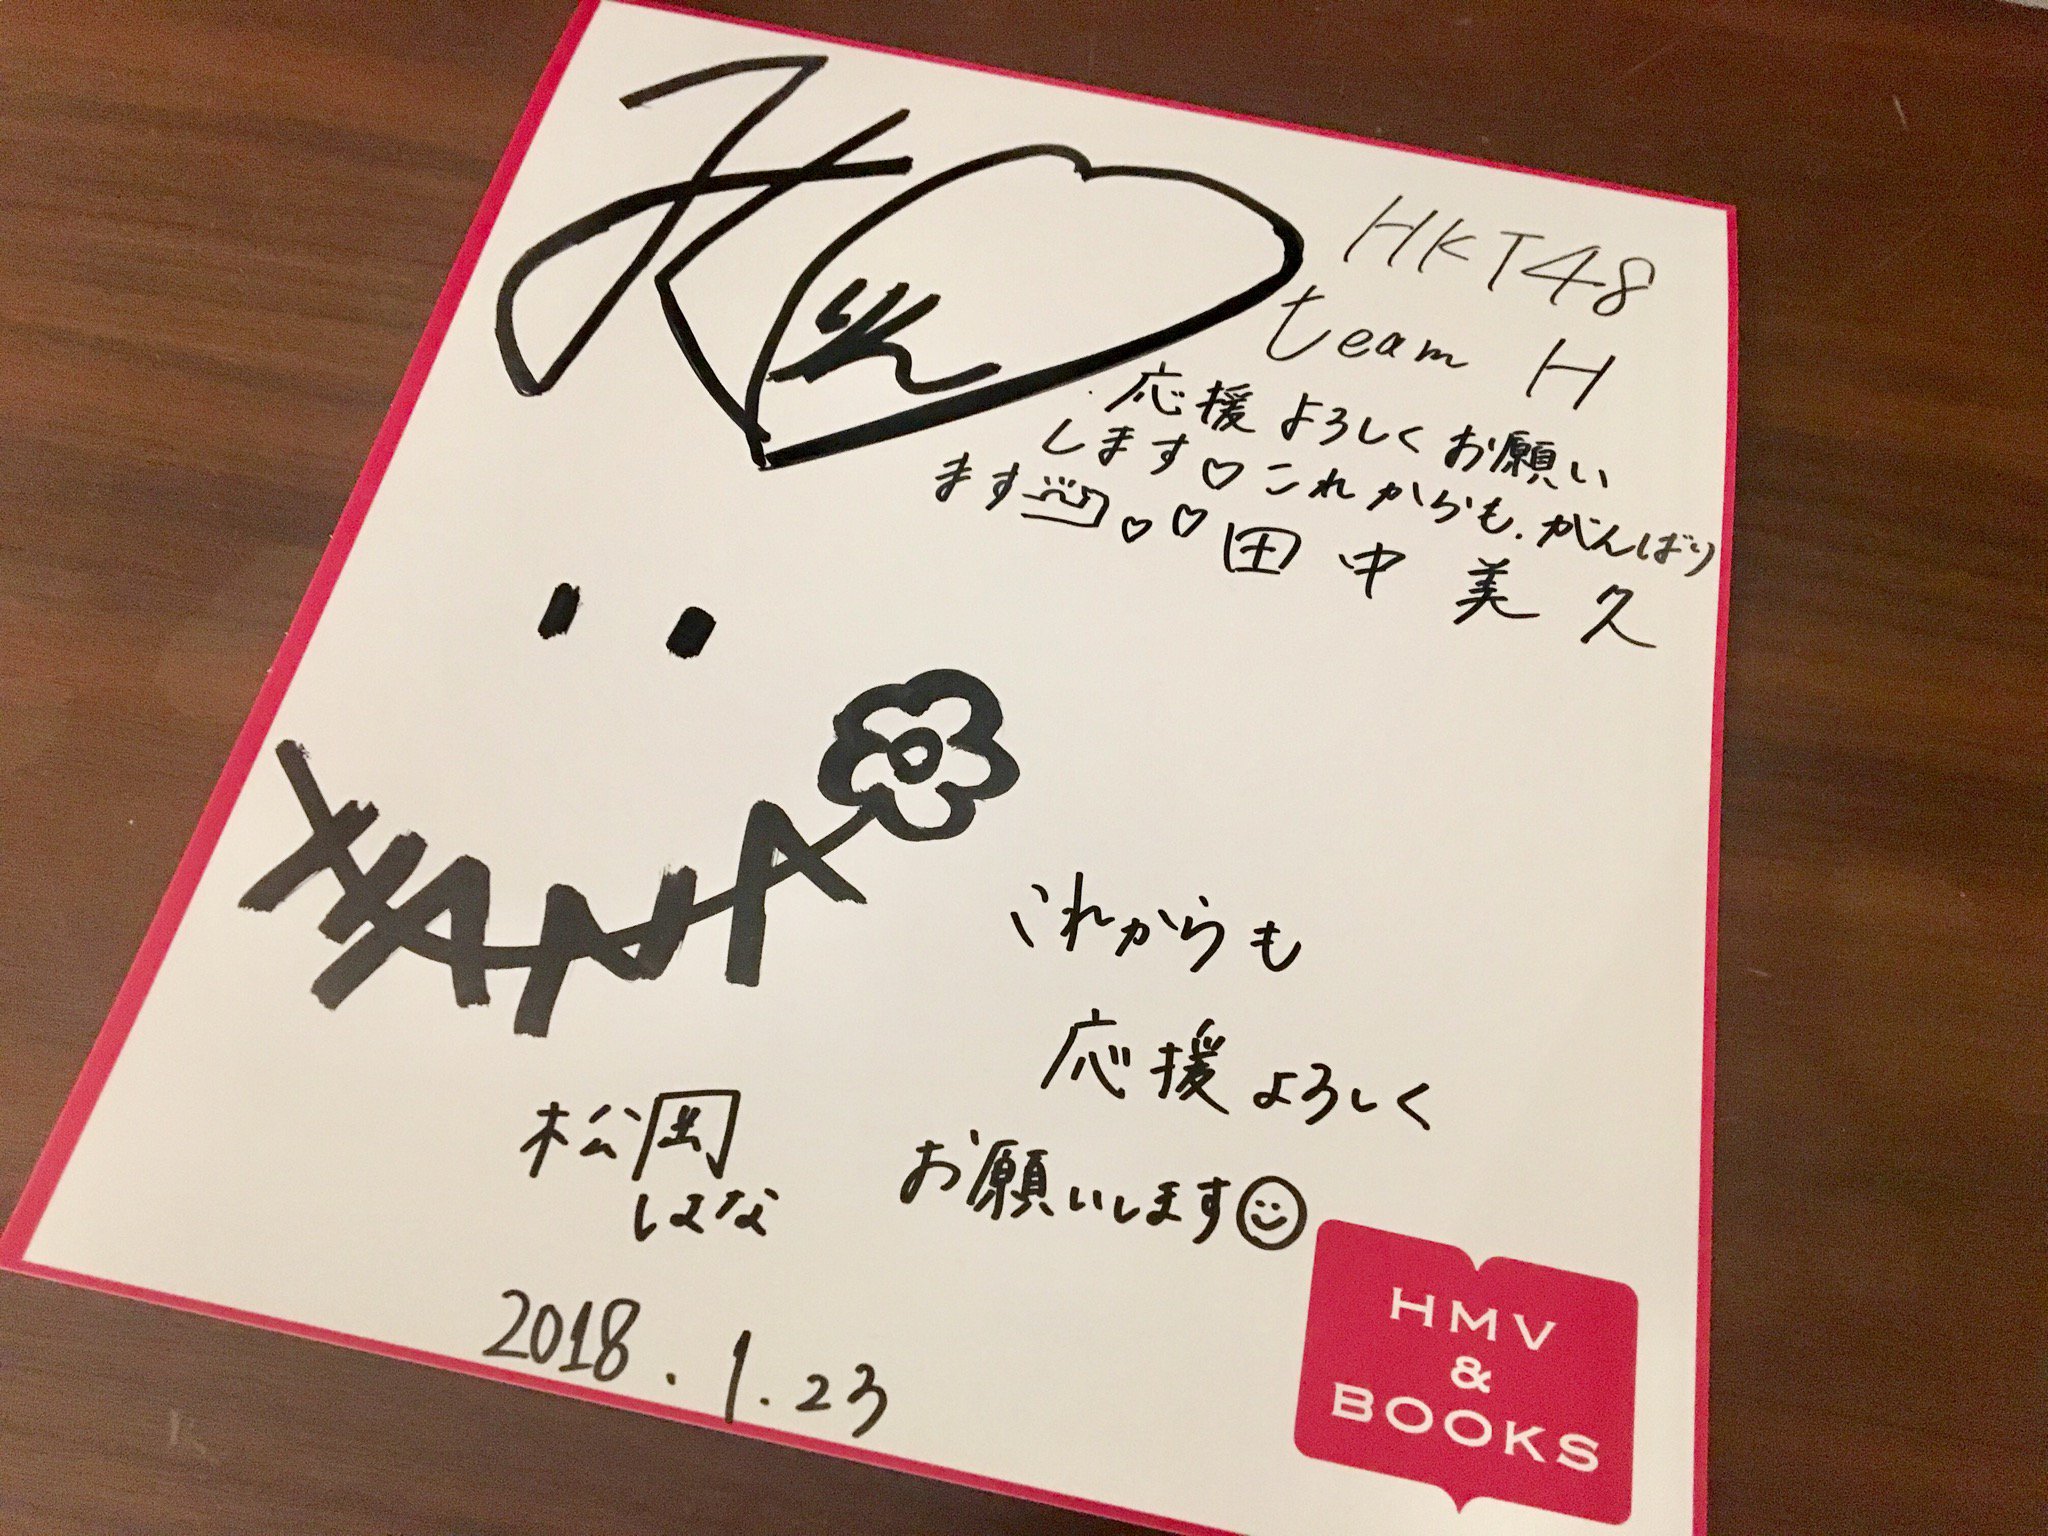 HKT48
team H
応援よろしくお願い
します♡これからも、がんばり
ます♡♡
田中美久
HANA
これからも
応援よろしく
お願いします
松岡
はな
2018.1.23
HMV
&
BOOKS